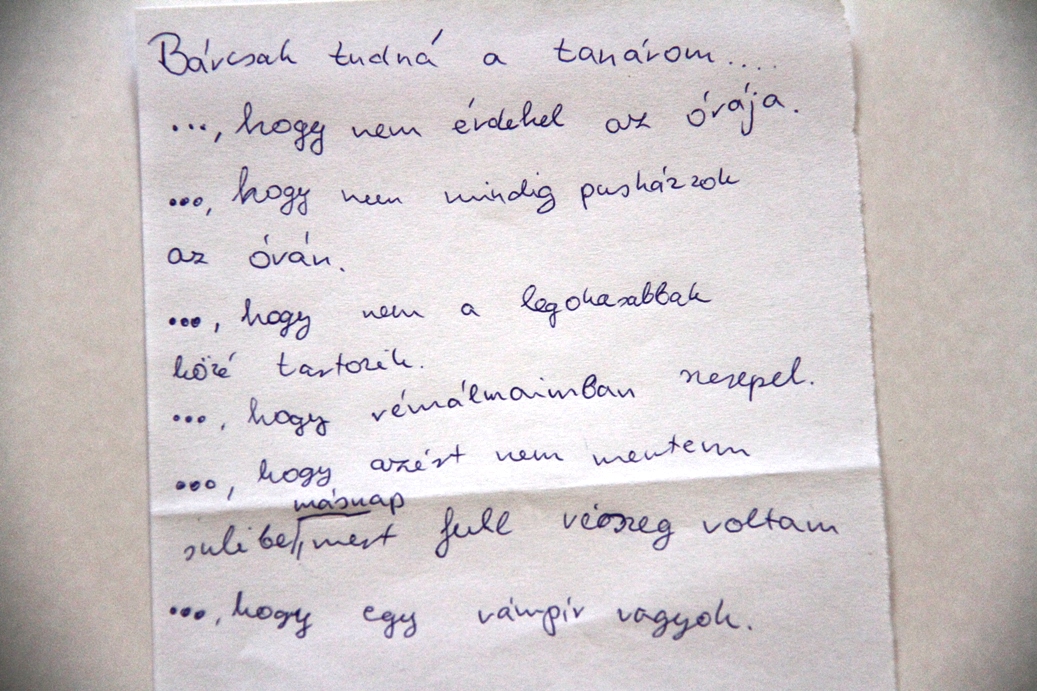 Bárcsak tudná a tanárom....
..., hogy nem érdekel az órája.
..., hogy nem mindig pusházzok
az órán.
..., hogy nem a legokasabbak
közé tartozik.
..., hogy rémálmaimban szerepel.
..., hogy azért nem mentem
másnap
suliba, mert full részeg voltam
..., hogy egy vámpír vagyok.